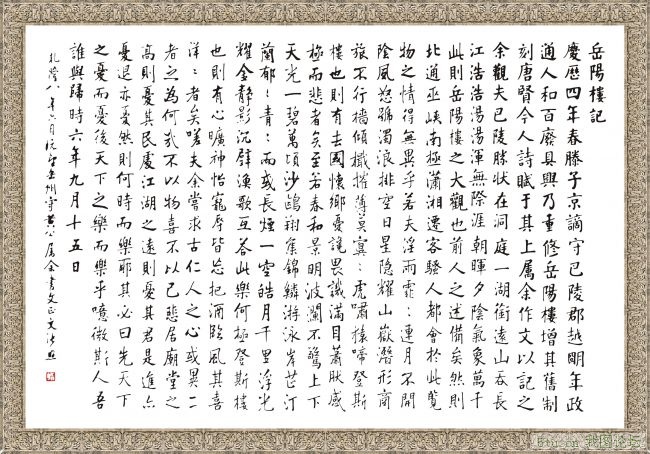 岳陽樓記
慶曆四年春滕子京謫守巴陵郡越明年政
通人和百廢具興乃重修岳陽樓增其舊制
刻唐賢今人詩賦于其上屬余作文以記之
余觀夫巴陵勝狀在洞庭一湖銜遠山吞長
江浩浩湯湯渾無際涯朝暉夕陰氣象萬千
此則岳陽樓之大觀也前人之述備矣然則
北通巫峽南極瀟湘遷客騷人都會於此覽
物之情得無異乎若夫淫雨霏:連月不開
陰風怒號濁浪排空日星隱耀山嶽潛形商
旅不行檣傾檝摧薄莫冥:虎嘯猿啼登斯
樓也則有去國懷鄉憂讒畏譏滿目蕭然感
極而悲者矣至若春和景明波瀾不驚上下
天光一碧萬頃沙鷗翔集錦鱗游泳岸芷汀
蘭郁:青:而或長煙一空皓月千里浮光
耀金靜影沉璧漁歌互答此樂何極登斯樓
也則有心曠神怡寵辱皆忘把酒臨風其喜
洋:者矣嗟夫余嘗求古仁人之心或異二
者之為何哉不以物喜不以己悲居廟堂之
高則憂其民處江湖之遠則憂其君是進亦
憂退亦憂然則何時而樂耶其必曰先天下
之憂而憂後天下之樂而樂乎噫微斯人吾
誰與歸時六年九月十五日